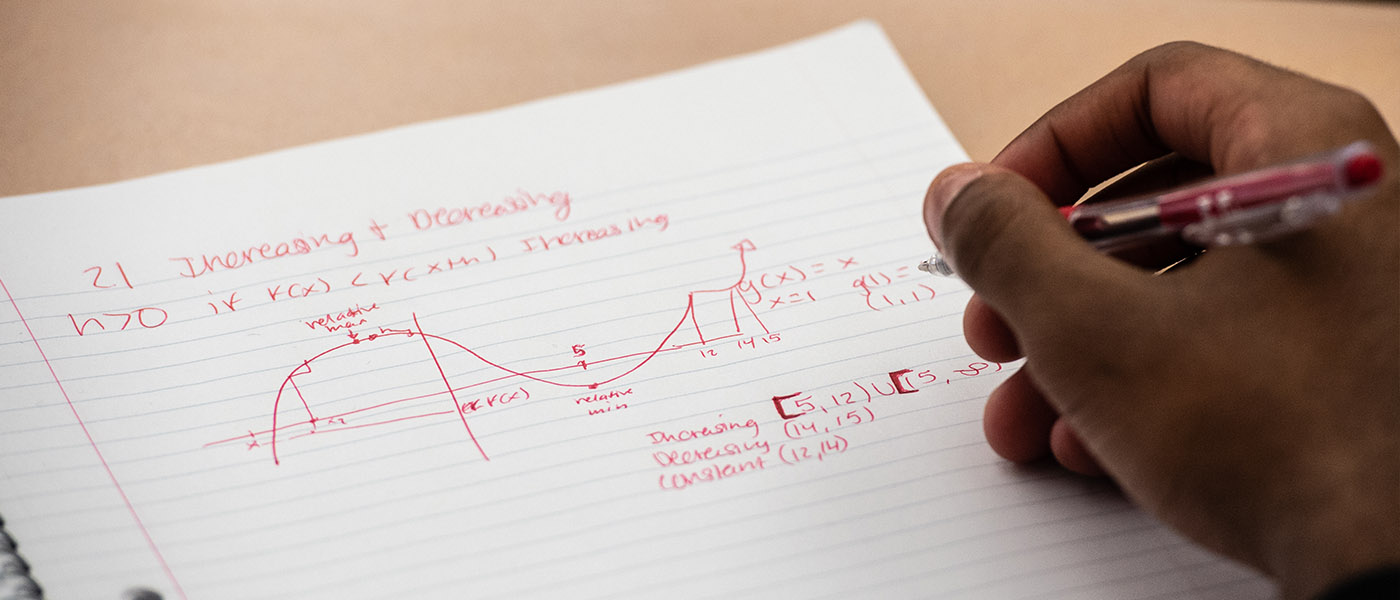 2.1 Increasing + Decreasing
h>0 if f(x) < f(x+h) Increasing
relative
max
h
g(x) = x
x=1
g(1) =
(1,1)
5
12 14 15
x
x2
f(x)
relative
min
Increasing [5,12) ∪ [15, ∞)
Decreasing (14,15)
constant (12,14)